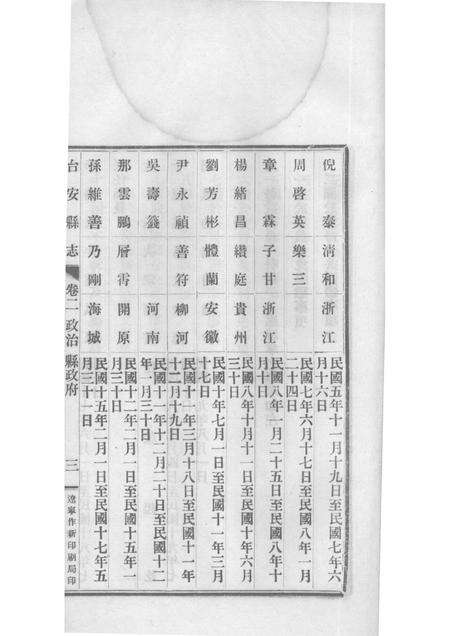 倪 泰 淸和 浙江 民國五年十一月十九日至民國七年六月十六日
周啓英 樂三 民國七年六月十七日至民國八年一月二十四日
章霖 子甘 浙江 民國八年一月二十五日至民國八年十月十日
楊緒昌 纘庭 貴州 民國八年十月十一日至民國十年六月三十日
劉芳彬 體蘭 安徽 民國十年七月一日至民國十一年三月十七日
尹永禎 善符 柳河 民國十一年三月十八日至民國十一年十二月十九日
吳壽籛 河南 民國十一年十二月二十日至民國十二年一月三十日
那雲鵬 層霄 開原 民國十二年二月一日至民國十五年一月三十日
孫維善 乃剛 海城 民國十五年二月一日至民國十七年五月三十一日
台安縣志 卷二 政治 縣政府 三 遼寧作新印刷局印